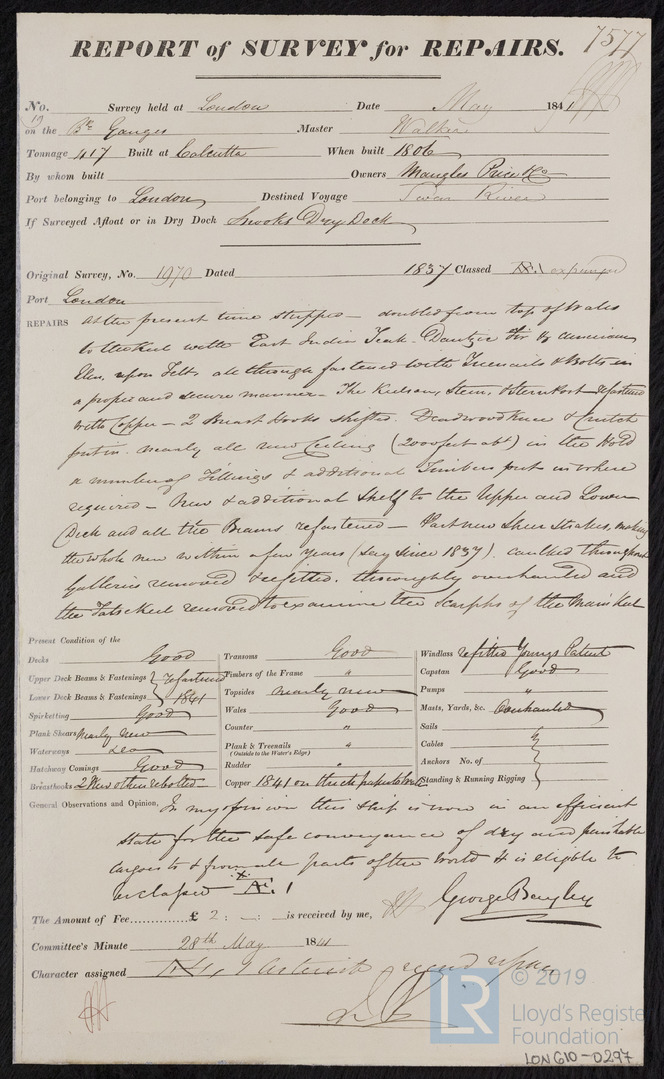 7577
REPORT of SURVEY for REPAIRS.
No. 19 Survey held at London Date May 1841
on the Bk Ganges Master Walker
Tonnage 417 Built at Calcutta When built 1806
By whom built Owners Mangles Price & Co
Port belonging to London Destined Voyage Swan River
If Surveyed Afloat or in Dry Dock Snooks Dry Dock
Original Survey, No. 1970 Dated 1837 Classed Æ.1 expunged
Port London
REPAIRS At the present time stripped - doubled from top of Wales
to the Keel with East India Teak - Dantzic Fir & American
Elm, upon Felt, all through fastened with Treenails & Bolts in
a proper and secure manner - The Keelson, Stem, & Sternpost refastened
with Copper - 2 Breast Hooks shifted. Deadwood Knee & Crutch
put in. nearly all new Ceiling (2000 feet abt) in the Hold
a number of Fillings & additional Timbers put in where
required - New & additional Shelf to the Upper and Lower
Deck and all the Beams refastened - Part new Sheer Strakes, making
the whole new within a few years (say since 1837). caulked throughout
Galleries removed & refitted. thoroughly overhauled and
the False Keel removed to examine the Scarphs of the Main Keel
Present Condition of the
Decks Good
Upper Deck Beams & Fastenings } refastened
Lower Deck Beams & Fastenings } 1841
Spirketting Good
Plank Shears Nearly new
Waterways Do
Hatchway Comings Good
Breasthooks 2 New others rebolted
Transoms Good
Timbers of the Frame "
Topsides nearly new
Wales Good
Counter "
Plank & Treenails "
(Outside to the Water's Edge)
Rudder "
Copper 1841 on thick paper
Windlass refitted Youngs Patent
Capstan Good
Pumps "
Masts, Yards, &c. Overhauled
Sails
Cables
Anchors No. of
Standing & Running Rigging
General Observations and Opinion, In my opinion this ship is now in an efficient
state for the safe conveyance of dry and perishable
cargoes to & from all parts of the World & is eligible to
be classed Æ.1
The Amount of Fee............ £ 2 : - : - is received by me, George Bayley
Committee's Minute 28th May 1841
Character assigned Asterisk
© 2019
LR
Lloyd's Register
Foundation
LON610-0297